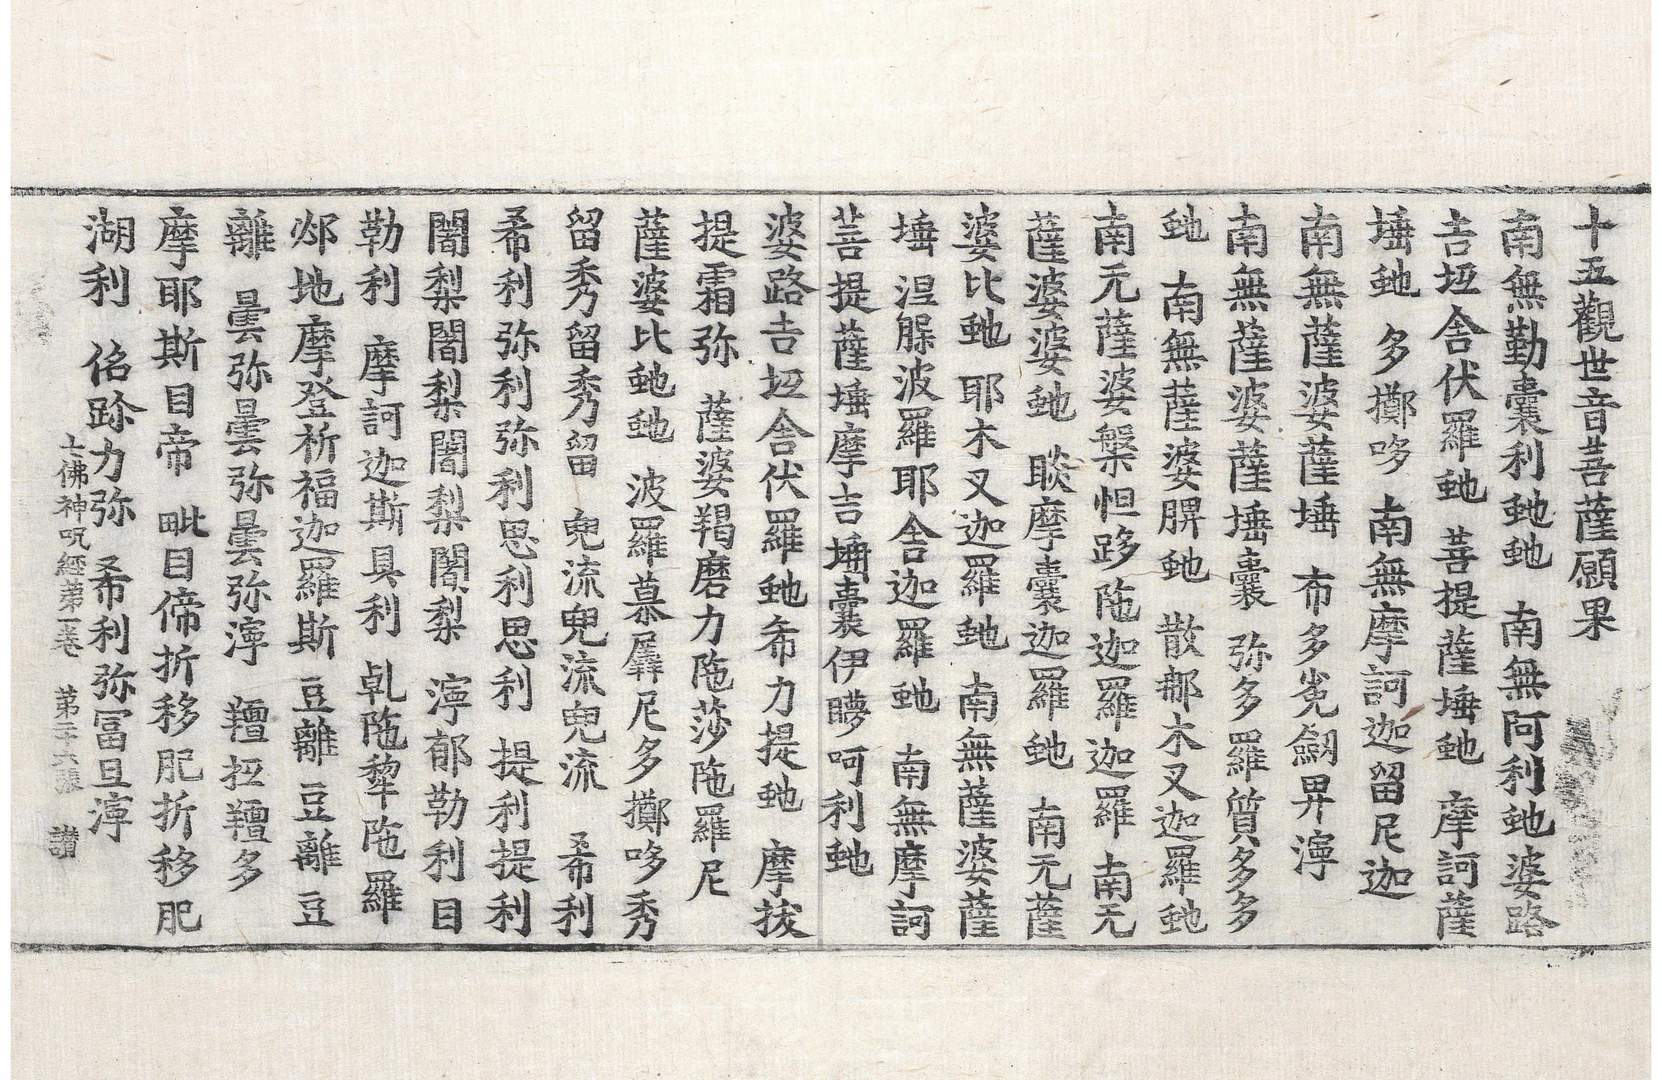 十五觀世音菩薩願果
南無勤囊利虵虵　南無阿利虵婆路
吉坘舍伏羅虵　菩提薩埵虵　摩訶薩
埵虵　多擲哆　南無摩訶迦留尼迦
南無薩婆薩埵　布多㝹劒畀濘
南無薩婆薩埵囊　弥多羅質多多
虵　南無薩婆脾虵　散郝木叉迦羅虵
南无薩婆槃怛跢陁迦羅迦羅　南无
薩婆婆虵　睒摩囊迦羅虵　南无薩
婆比虵　耶木叉迦羅虵　南無薩婆薩
埵　涅䐾波羅耶舍迦羅虵　南無摩訶
菩提薩埵摩吉埵囊伊㬹呵利虵
婆路吉坘舍伏羅虵希力提虵　摩拔
提霜弥　薩婆羯磨力陁莎陁羅尼
薩婆比虵虵　波羅慕羼尼多擲哆秀
留秀留秀留　㝹流㝹流㝹流　希利
希利弥利弥利思利思利　提利提利
闍梨闍梨闍梨闍梨　濘郁勒利目
勒利　摩訶迦斯具利　乹陁犂陁羅
邥地摩登祈福迦羅斯　豆離豆離豆
離　曇弥曇弥曇弥濘　羶抂羶多
摩耶斯目帝　毗目偙折移肥折移肥
湖利　佲跈力弥　希利弥冨旦濘
七佛神呪經第一卷　第二十六張　讃